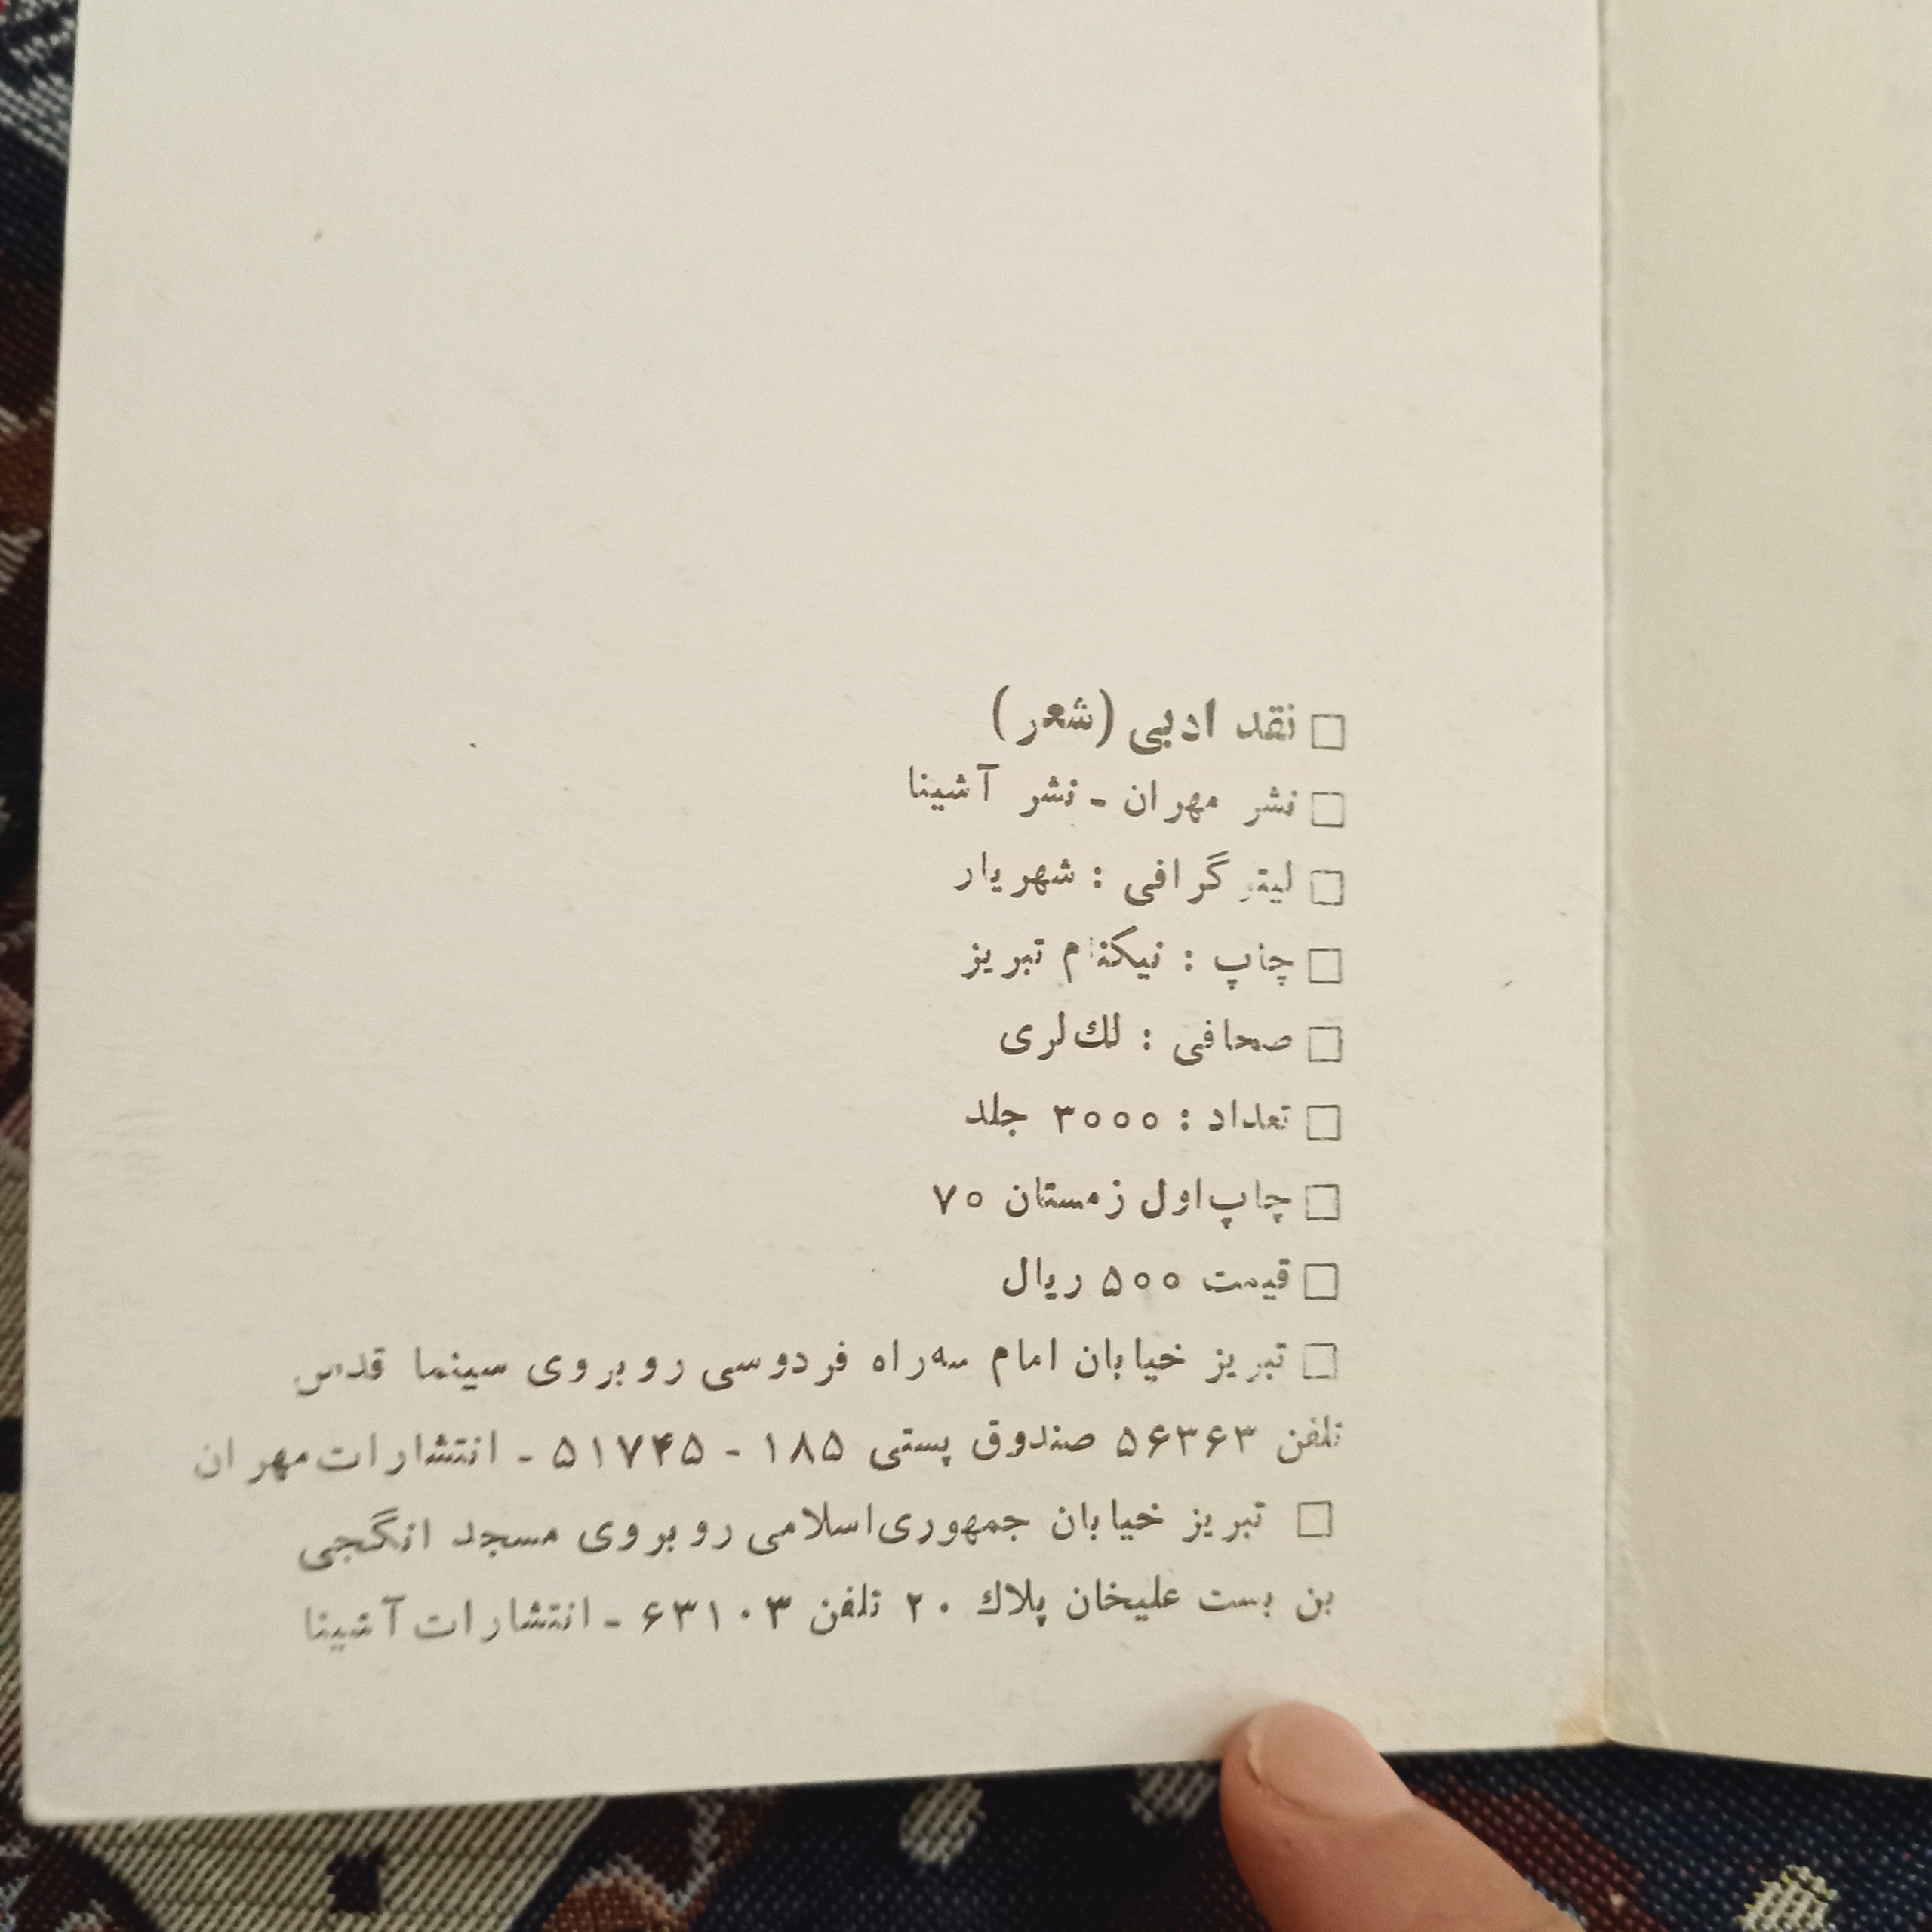 □ نقد ادبی (شعر)
□ نشر مهران - نشر آشینا
□ لیتوگرافی : شهریار
□ چاپ : نیکنام تبریز
□ صحافی : لك‌لری
□ تعداد : ۳۰۰۰ جلد
□ چاپ‌اول زمستان ۷۰
□ قیمت ۵۰۰ ریال
□ تبریز خیابان امام سه‌راه فردوسی روبروی سینما قدس
تلفن ۵۶۳۶۳ صندوق پستی ۱۸۵ - ۵۱۷۴۵ - انتشارات‌مهران
□ تبریز خیابان جمهوری‌اسلامی روبروی مسجد انگجی
بن بست علیخان پلاك ۲۰ تلفن ۶۳۱۰۳ - انتشارات آشینا